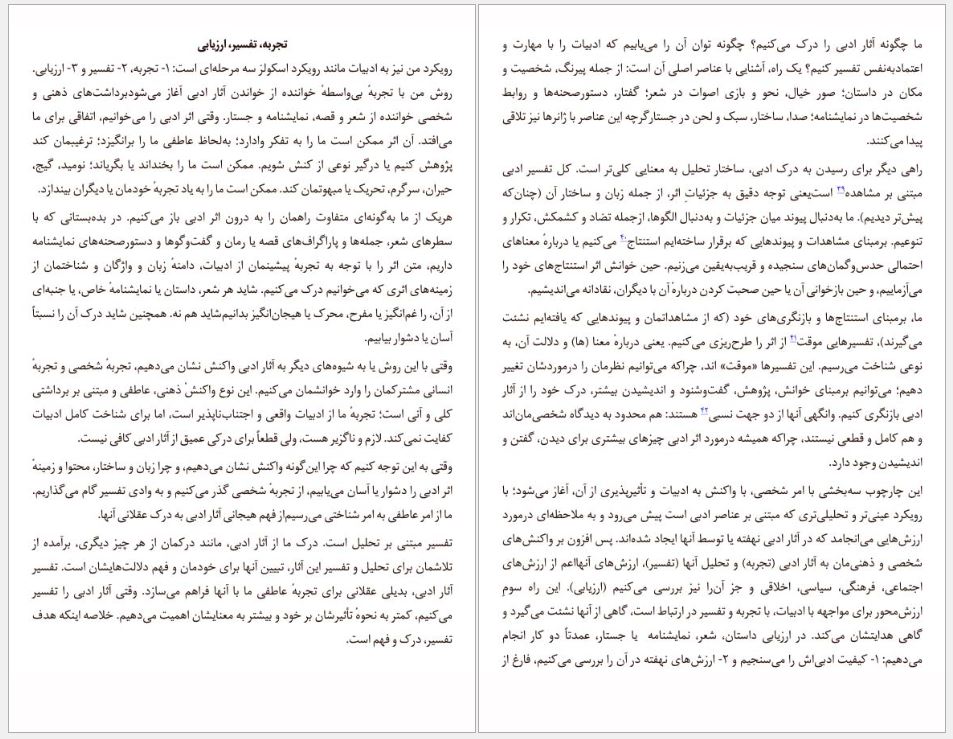 تجربه، تفسیر، ارزیابی
رویکرد من نیز به ادبیات مانند رویکرد اسکولز سه مرحله‌ای است: ۱- تجربه، ۲- تفسیر و ۳- ارزیابی.
روش من با تجربهٔ بی‌واسطهٔ خواننده از خواندن آثار ادبی آغاز می‌شودبرداشت‌های ذهنی و
شخصی خواننده از شعر و قصه، نمایشنامه و جستار. وقتی اثر ادبی را می‌خوانیم، اتفاقی برای ما
می‌افتد. آن اثر ممکن است ما را به تفکر وادارد؛ به‌لحاظ عاطفی ما را برانگیزد؛ ترغیبمان کند
پژوهش کنیم یا درگیر نوعی از کنش شویم. ممکن است ما را بخنداند یا بگریاند؛ نومید، گیج،
حیران، سرگرم، تحریک یا مبهوتمان کند. ممکن است ما را به یاد تجربهٔ خودمان یا دیگران بیندازد.
هریک از ما به‌گونه‌ای متفاوت راهمان را به درون اثر ادبی باز می‌کنیم. در بده‌بستانی که با
سطرهای شعر، جمله‌ها و پاراگراف‌های قصه یا رمان و گفت‌وگوها و دستورصحنه‌های نمایشنامه
داریم، متن اثر را با توجه به تجربهٔ پیشینمان از ادبیات، دامنهٔ زبان و واژگان و شناختمان از
زمینه‌های اثری که می‌خوانیم درک می‌کنیم. شاید هر شعر، داستان یا نمایشنامهٔ خاص، یا جنبه‌ای
از آن، را غم‌انگیز یا مفرح، محرک یا هیجان‌انگیز بدانیم‌شاید هم نه. همچنین شاید درک آن را نسبتاً
آسان یا دشوار بیابیم.
وقتی با این روش یا به شیوه‌های دیگر به آثار ادبی واکنش نشان می‌دهیم، تجربهٔ شخصی و تجربهٔ
انسانی مشترکمان را وارد خوانشمان می‌کنیم. این نوع واکنشْ ذهنی، عاطفی و مبتنی بر برداشتی
کلی و آنی است؛ تجربهٔ ما از ادبیات واقعی و اجتناب‌ناپذیر است، اما برای شناخت کامل ادبیات
کفایت نمی‌کند. لازم و ناگزیر هست، ولی قطعاً برای درکی عمیق از آثار ادبی کافی نیست.
وقتی به این توجه کنیم که چرا این‌گونه واکنش نشان می‌دهیم، و چرا زبان و ساختار، محتوا و زمینهٔ
اثر ادبی را دشوار یا آسان می‌یابیم، از تجربهٔ شخصی گذر می‌کنیم و به وادی تفسیر گام می‌گذاریم.
ما از امر عاطفی به امر شناختی می‌رسیم‌از فهم هیجانی آثار ادبی به درک عقلانی آنها.
تفسیر مبتنی بر تحلیل است. درک ما از آثار ادبی، مانند درکمان از هر چیز دیگری، برآمده از
تلاشمان برای تحلیل و تفسیر این آثار، تبیین آنها برای خودمان و فهم دلالت‌هایشان است. تفسیر
آثار ادبی، بدیلی عقلانی برای تجربهٔ عاطفی ما با آنها فراهم می‌سازد. وقتی آثار ادبی را تفسیر
می‌کنیم، کمتر به نحوهٔ تأثیرشان بر خود و بیشتر به معنایشان اهمیت می‌دهیم. خلاصه اینکه هدف
تفسیر، درک و فهم است.
ما چگونه آثار ادبی را درک می‌کنیم؟ چگونه توان آن را می‌یابیم که ادبیات را با مهارت و
اعتمادبه‌نفس تفسیر کنیم؟ یک راه، آشنایی با عناصر اصلی آن است: از جمله پیرنگ، شخصیت و
مکان در داستان؛ صور خیال، نحو و بازی اصوات در شعر؛ گفتار، دستورصحنه‌ها و روابط
شخصیت‌ها در نمایشنامه؛ صدا، ساختار، سبک و لحن در جستارگرچه این عناصر با ژانرها نیز تلاقی
پیدا می‌کنند.
راهی دیگر برای رسیدن به درک ادبی، ساختار تحلیل به معنایی کلی‌تر است. کل تفسیر ادبی
مبتنی بر مشاهده۳۹ است‌یعنی توجه دقیق به جزئیاتِ اثر، از جمله زبان و ساختار آن (چنان‌که
پیش‌تر دیدیم). ما به‌دنبال پیوند میان جزئیات و به‌دنبال الگوها، ازجمله تضاد و کشمکش، تکرار و
تنوعیم. برمبنای مشاهدات و پیوندهایی که برقرار ساخته‌ایم استنتاج۴۰ می‌کنیم یا دربارهٔ معناهای
احتمالی حدس‌وگمان‌های سنجیده و قریب‌به‌یقین می‌زنیم. حین خوانش اثر استنتاج‌های خود را
می‌آزماییم، و حین بازخوانی آن یا حین صحبت کردن دربارهٔ آن با دیگران، نقادانه می‌اندیشیم.
ما، برمبنای استنتاج‌ها و بازنگری‌های خود (که از مشاهداتمان و پیوندهایی که یافته‌ایم نشئت
می‌گیرند)، تفسیرهایی موقت۴۱ از اثر را طرح‌ریزی می‌کنیم. یعنی دربارهٔ معنا (ها) و دلالت آن، به
نوعی شناخت می‌رسیم. این تفسیرها «موقت» اند، چراکه می‌توانیم نظرمان را درموردشان تغییر
دهیم؛ می‌توانیم برمبنای خوانش، پژوهش، گفت‌وشنود و اندیشیدن بیشتر، درک خود را از آثار
ادبی بازنگری کنیم. وانگهی آنها از دو جهت نسبی۴۲ هستند: هم محدود به دیدگاه شخصی‌مان‌اند
و هم کامل و قطعی نیستند، چراکه همیشه درمورد اثر ادبی چیزهای بیشتری برای دیدن، گفتن و
اندیشیدن وجود دارد.
این چارچوب سه‌بخشی با امر شخصی، با واکنش به ادبیات و تأثیرپذیری از آن، آغاز می‌شود؛ با
رویکرد عینی‌تر و تحلیلی‌تری که مبتنی بر عناصر ادبی است پیش می‌رود و به ملاحظه‌ای درمورد
ارزش‌هایی می‌انجامد که در آثار ادبی نهفته یا توسط آنها ایجاد شده‌اند. پس افزون بر واکنش‌های
شخصی و ذهنی‌مان به آثار ادبی (تجربه) و تحلیل آنها (تفسیر)، ارزش‌های آنهااعم از ارزش‌های
اجتماعی، فرهنگی، سیاسی، اخلاقی و جز آن‌را نیز بررسی می‌کنیم (ارزیابی). این راه سومِ
ارزش‌محور برای مواجهه با ادبیات، با تجربه و تفسیر در ارتباط است، گاهی از آنها نشئت می‌گیرد و
گاهی هدایتشان می‌کند. در ارزیابی داستان، شعر، نمایشنامه یا جستار، عمدتاً دو کار انجام
می‌دهیم: ۱- کیفیت ادبی‌اش را می‌سنجیم و ۲- ارزش‌های نهفته در آن را بررسی می‌کنیم، فارغ از